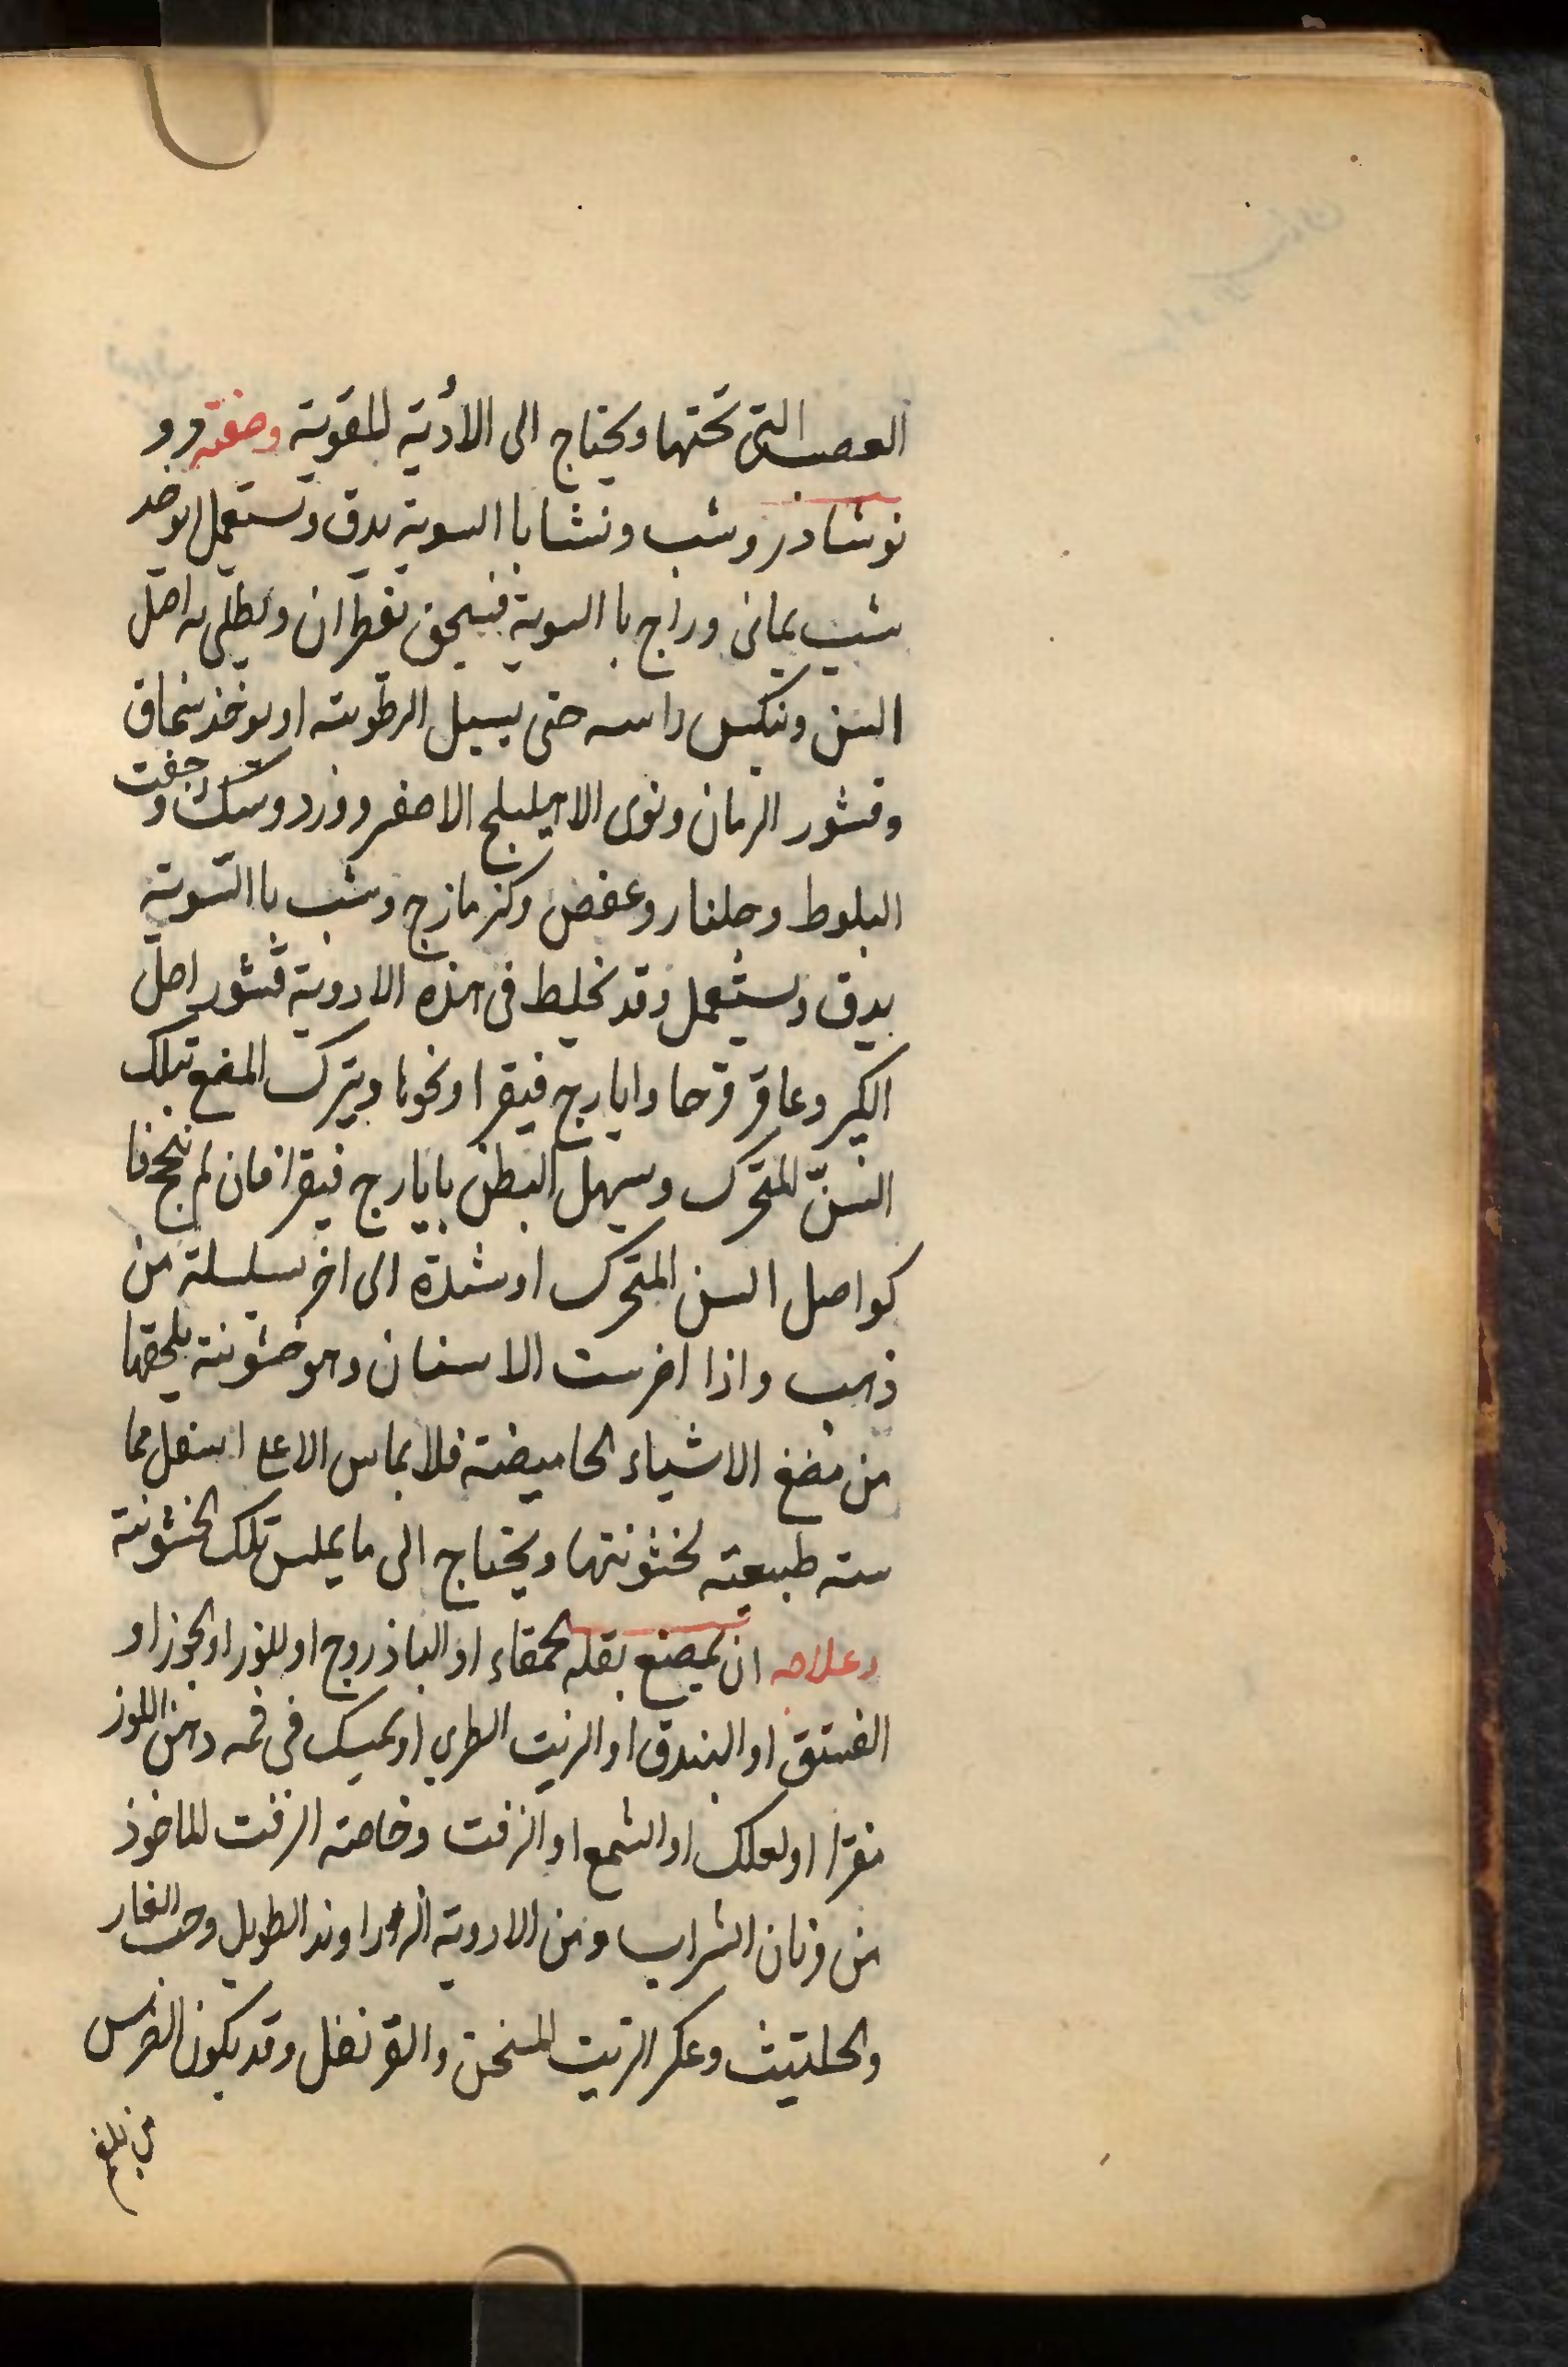 العصب التى تحتها ويحتاج الى الأدية المقوية وصفته ورو
نوشادر وشب ونشا باالسوية يدق وتستعمل او يوخد
شب يمانى وزاج باالسوية فيسحق بقطران ويطلى به اصل
السن وينكس راسه حتى يسيل الرطوبته او يوخذ سماق
وقشور الرمان ونوى الاهيليلج الاصفر وورد وسك وجفت
البلوط وجلنار وعفص وكزمازج وشب باالسوية
يدق ويستعمل وقد يخليط فى هذه الادوية قشور اصل
الكبر وعاقر قرحا وايارج فيقرا ونحوها ويترك المضع بتلك
السنّ المتحرك ويسهل البطن بايارج فيقرا فان لم ينجح فا
كو اصل السن المتحرك او شدة الى اخر بسلسلة من
ذهب واذا اضرست الاسنان وهو خشونته يلحقها
من مضغ الاشياء الحاميضته فلا يماس الاعلى اسفل مما
سته طبيعته لخشونتها ويحتاج الى ما يملس تلك الخشونته
وعلاجه ان يمضع بقله الحمقاء او الباذروج او اللوز او الجوز او
الفستق او البندق او الزيت الطرى او يمسك فى فمه دهن اللوز
مفترا او لعلك او الشمع او الزفت وخاصته الزفت الماخوذ
من دنان الشراب ومن الادوية الزراوند الطويل وحب الغار
والحلتيث وعكر الزيت المسخن والقرنفل وقد يكون الضرس
من بلغم